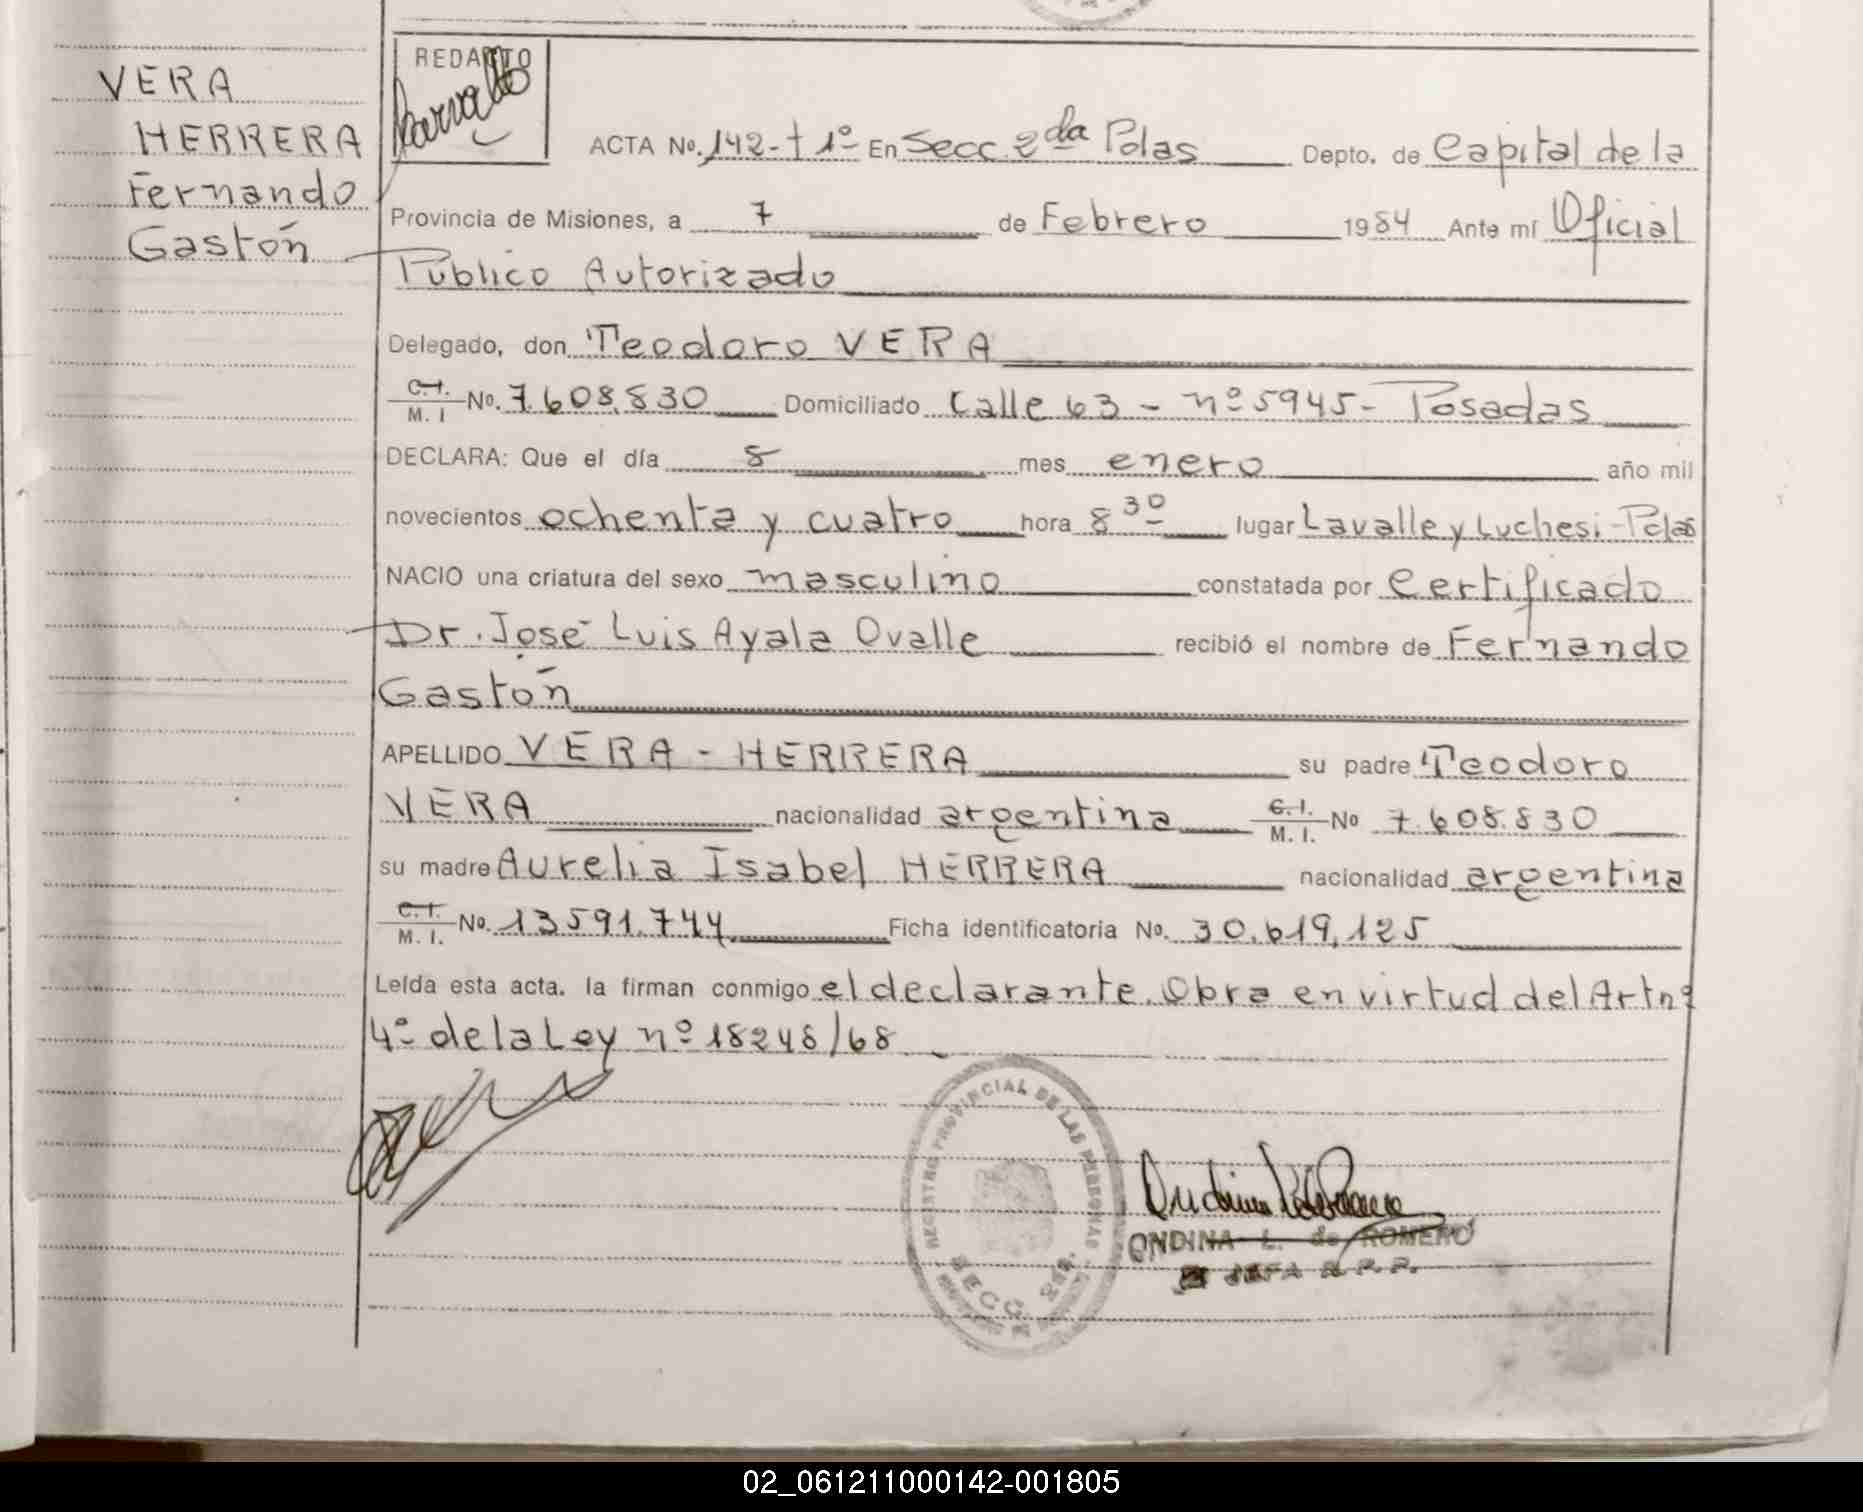 VERA
HERRERA
Fernando
Gastón
REDACTO
ACTA No. 142-t 1º En Secc. 2da Pdas Depto. de Capital de la
Provincia de Misiones, a 7 de Febrero 1984 Ante mí Oficial
Público Autorizado
Delegado, don Teodoro VERA
C.I. M. I No. 7.608.830 Domiciliado Calle 63 - nº 5945- Posadas
DECLARA: Que el día 8 mes enero año mil
novecientos ochenta y cuatro hora 8 30 lugar Lavalle y Luchesi-Pdas
NACIO una criatura del sexo masculino constatada por Certificado
Dr. José Luis Ayala Ovalle recibió el nombre de Fernando
Gastón
APELLIDO VERA - HERRERA su padre Teodoro
VERA nacionalidad argentina C.I. M. I. No 7.608.830
su madre Aurelia Isabel HERRERA nacionalidad argentina
C.I. M. I. No. 13591.744 Ficha identificatoria No. 30.619.125
Leída esta acta. la firman conmigo el declarante. Obra en virtud del Art nº
4º de la Ley nº 18248/68
REGISTRO PROVINCIAL DE LAS PERSONAS
SECC. 2da.
ONDINA L. de ROMERO
JEFA R. P. P.
02_061211000142-001805